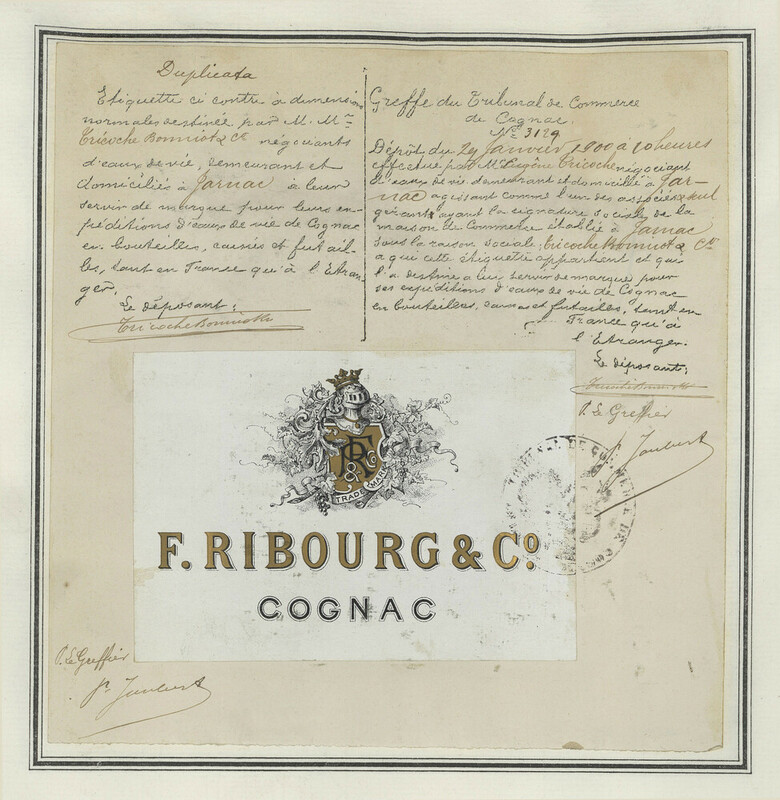 Duplicata
Etiquette ci contre à dimensions
normales destinée par M. Mrs
Tricoche Bonniot & Cie négociants
d'eaux de vie, demeurant et
domiciliés à Jarnac à leur
servir de marque pour leurs ex-
péditions d'eaux de vie de Cognac
en bouteilles, caisses et futail-
les, tant en France qu'à l'Etran-
ger.
Le déposant:
Tricoche Bonniot & Cie
Greffe du Tribunal de Commerce
de Cognac.
No 3129
Dépôt du 29 Janvier 1900 à 10 heures
effectué par Mr Eugène Tricoche négociant
d'eaux de vie demeurant et domicilié à Jar-
nac agissant comme l'un des associés & seul
gérant ayant la signature sociale de la
maison de Commerce établie à Jarnac
sous la raison sociale: Tricoche Bonniot & Cie
a qui cette étiquette appartient et qui
l'a destine a lui servir de marque pour
ses expéditions d'eaux de vie de Cognac
en bouteilles, caisses et futailles, tant en
France qu'à
l'Etranger.
Le déposant:
Tricoche Bonniot & Cie
P. Le Greffier
P. Joubert
FR & Co
TRADE MARK
TRIBUNAL DE COMMERCE DE
F. RIBOURG & Co.
COGNAC
P. Le Greffier
P. Joubert